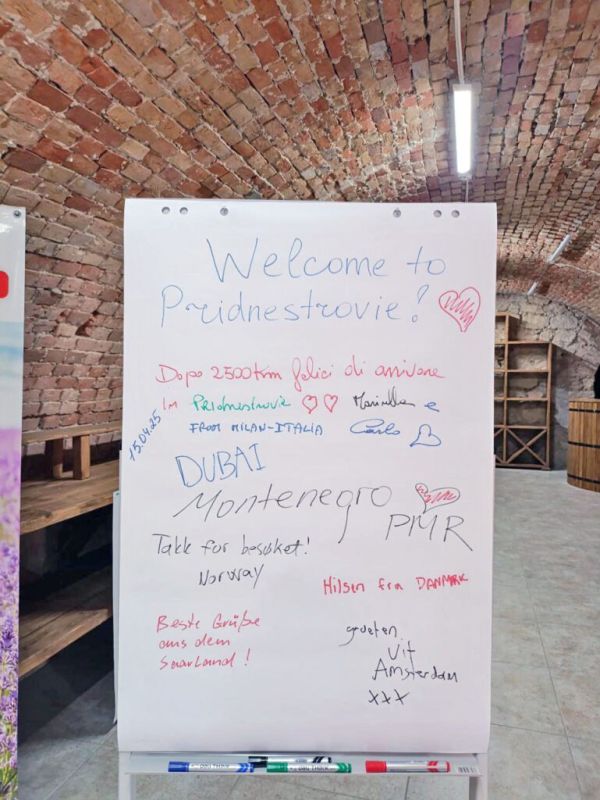 Welcome to
Pridnestrovie!
Dopo 2500 km felici di arrivare
in Pridnestrovie Marinella e
FROM MILAN-ITALIA Carlo
15.04.25
DUBAI
Montenegro
PMR
Takk for besøket!
Norway
Hilsen fra DANMARK
Beste Grüße
aus dem
Saarland!
groeten
uit
Amsterdam
xxx